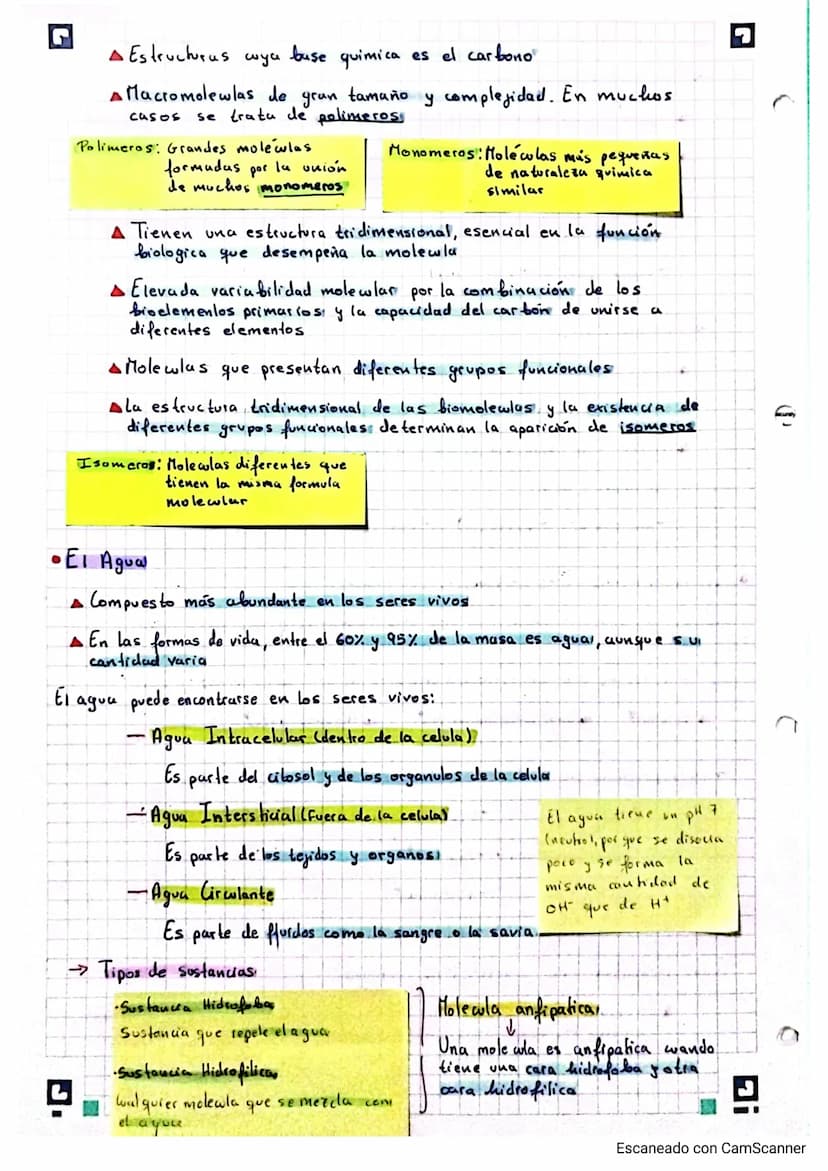 ▲ Estructuras cuya base quimica es el carbono
▲ Macromoleculas de gran tamaño y complejidad. En muchos
casos se trata de polimeros
Polimeros: Grandes moléculas
formadas por la unión
de muchos monomeros
Monomeros: Moléculas más pequeñas
de naturaleza quimica
similar
▲ Tienen una estructura tridimensional, esencial en la función
biologica que desempeña la molecula
▲ Elevada variabilidad molecular por la combinación de los
bioelementos primarios y la capacidad del carbón de unirse a
diferentes elementos
▲ Moleculas que presentan diferentes grupos funcionales
▲ La estructura tridimensional de las biomoleculas y la existencia de
diferentes grupos funcionales determinan la aparición de isomeros
Isomeros: Moleculas diferentes que
tienen la misma formula
molecular
• El Agua
▲ Compuesto más abundante en los seres vivos
▲ En las formas de vida, entre el 60% y 95% de la masa es agua, aunque su
cantidad varia
El agua puede encontrarse en los seres vivos:
— Agua Intracelular (dentro de la celula)
Es parte del citosol y de los organulos de la celula
— Agua Intersticial (Fuera de la celula)
Es parte de los tejidos y organos
— Agua Circulante
Es parte de fluidos como la sangre o la savia
El agua tiene un pH 7
(neutro), por que se disocia
poco y se forma la
misma cantidad de
OH⁻ que de H⁺
→ Tipos de sustancias
·Sustancia Hidrofoba
Sustancia que repele el agua
·Sustancia Hidrofilica
Cualquier molecula que se mezcla con
el agua
Molecula anfipatica
↓
Una molecula es anfipatica cuando
tiene una cara hidrofoba y otra
cara hidrofilica
Escaneado con CamScanner